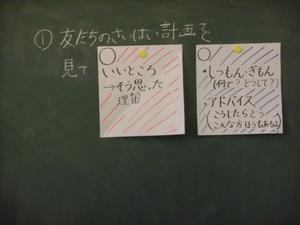 ① 友だちのさいばい計画を
見て
いいところ
→そう思った
理由
・しつもん・ぎもん
(何で？どうして？)
・アドバイス
(こうしたらどう
こんな方ほうもあるよ)